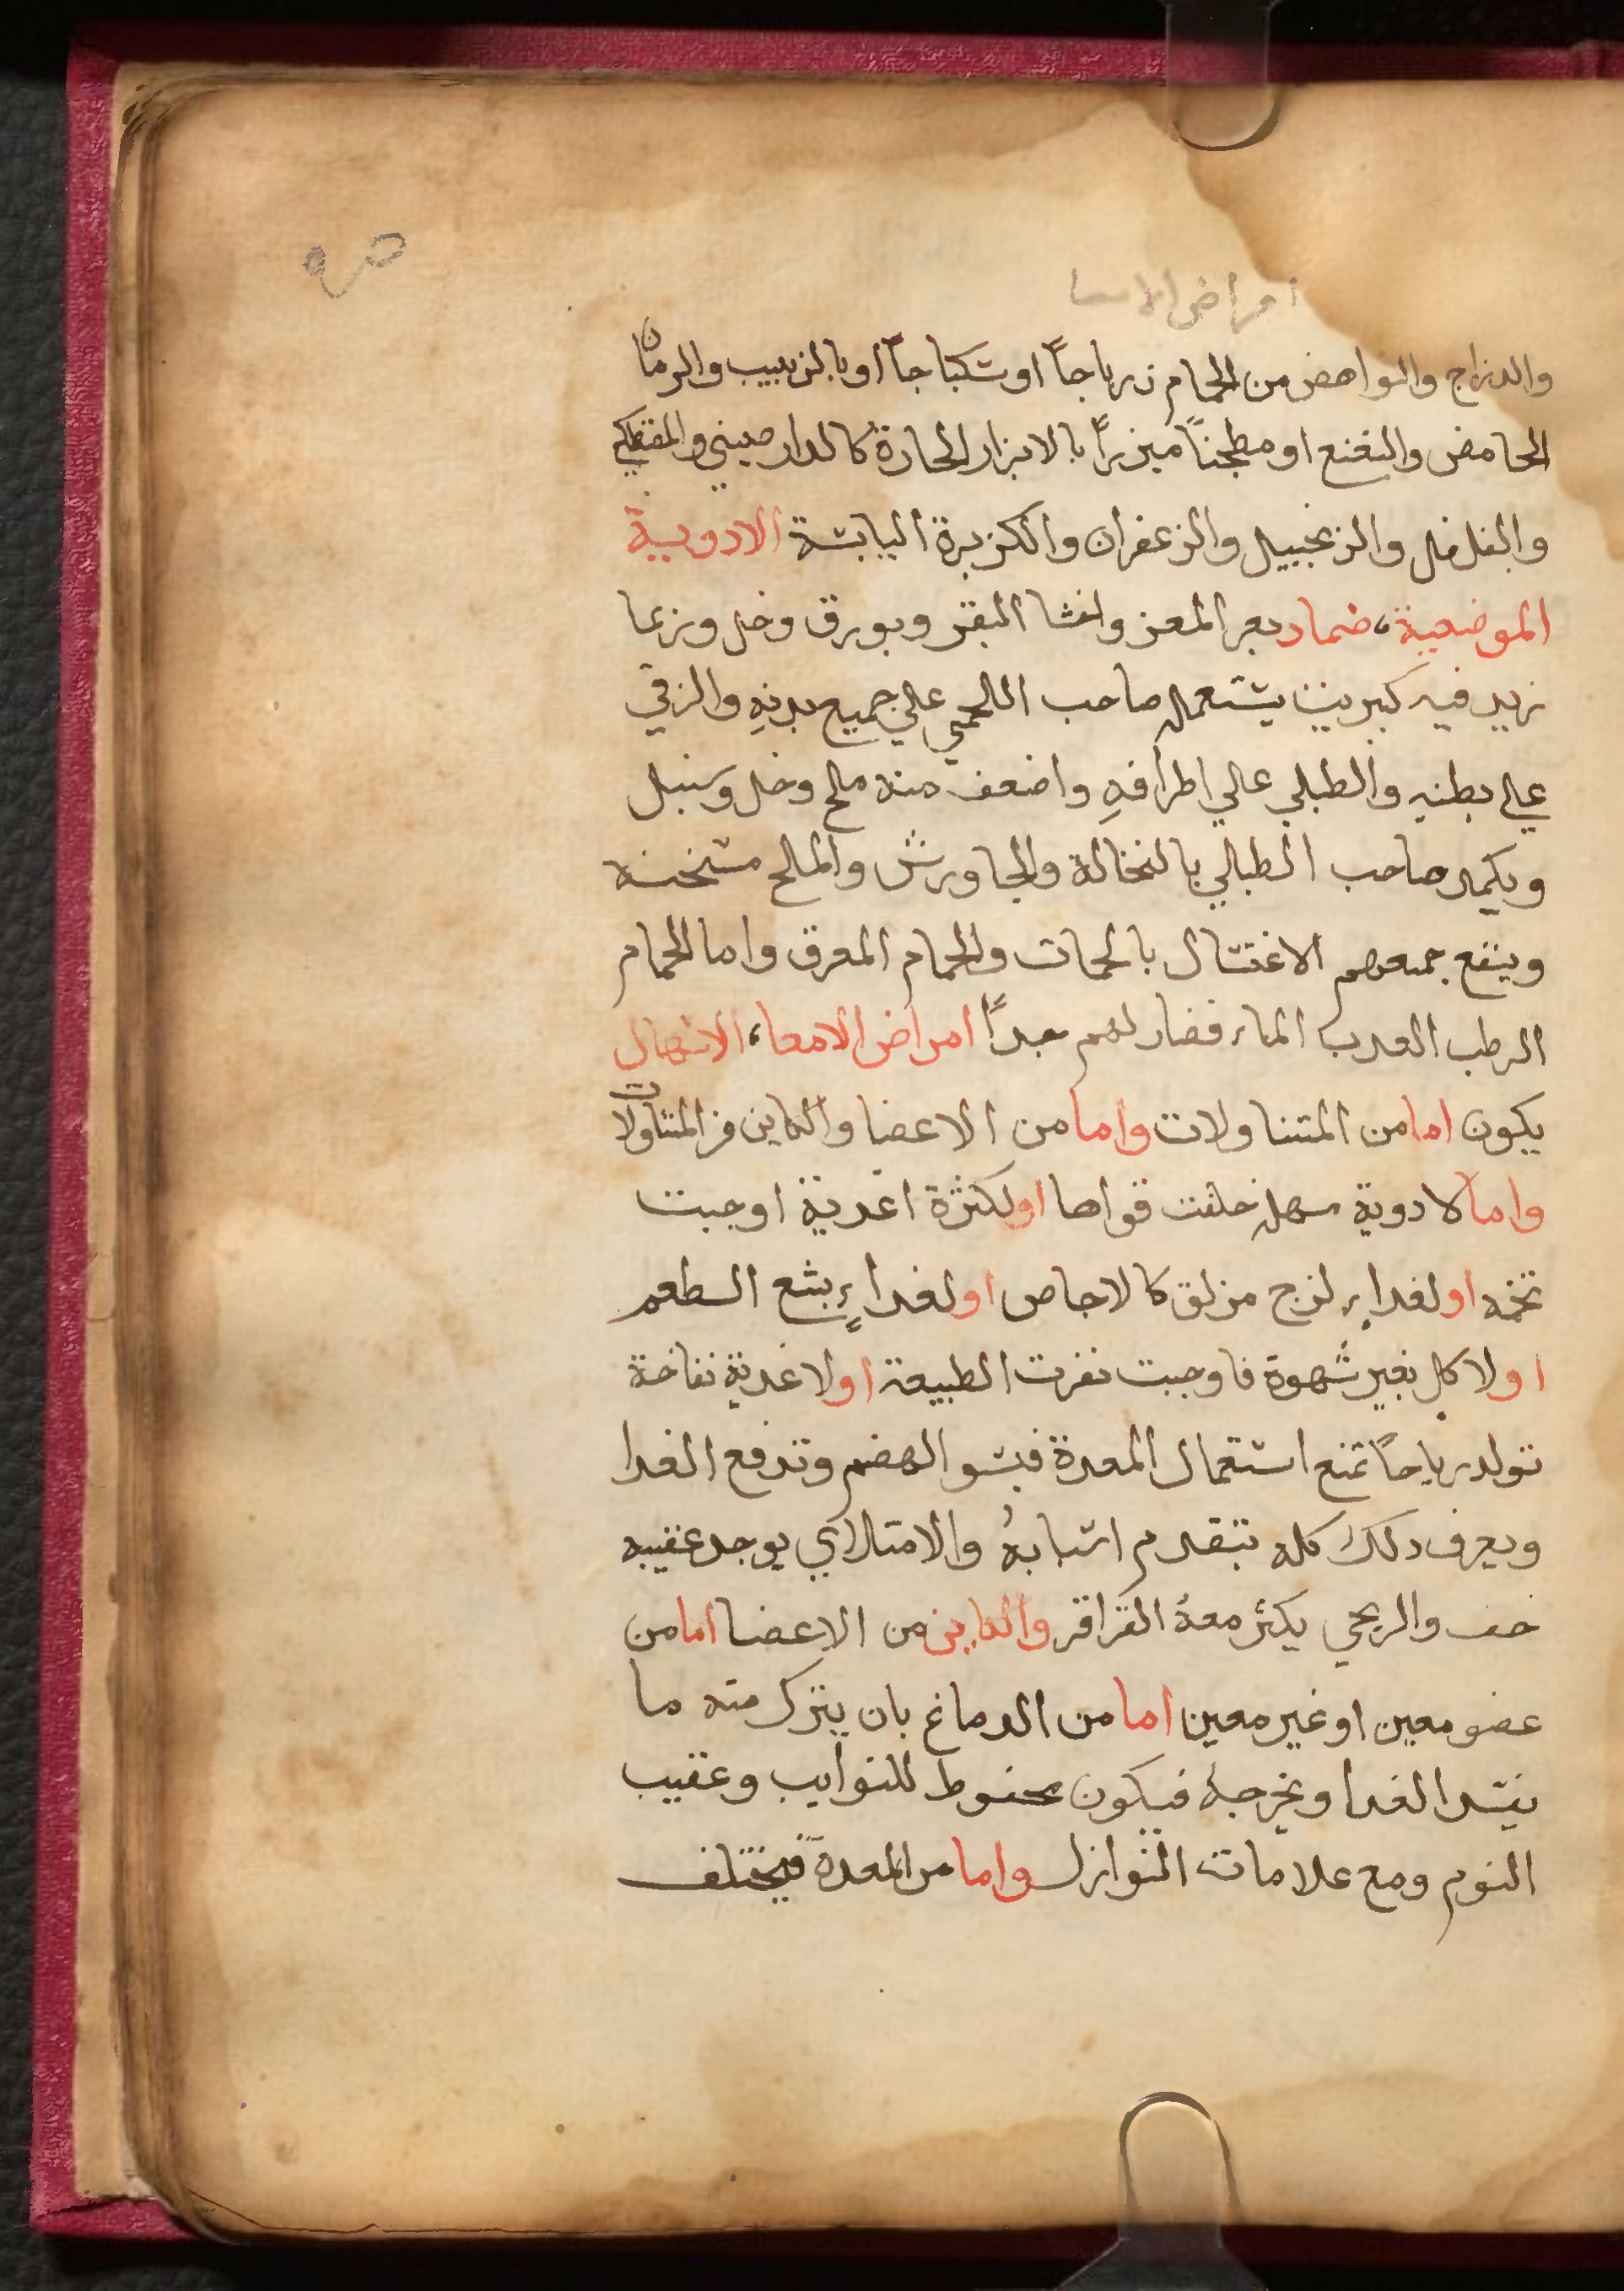 امراض الامعا
والدراج والنواهض من الحمام زرباجاً او سكباجاً او بالزبيب والرمان
الحامض والنعنع او مطجناً مبزراً بالابزار الحارة كالدارصيني والمصطكي
والفلفل والزنجبيل والزعفران والكزبرة اليابسة الادوية
الموضعية، ضماد بعر المعز واخثا البقر وبورق وخل وربما
زيد فيه كبريت يستعمله صاحب اللحمي علي جميع بدنهِ والزقي
علي بطنهِ والطبلي علي اطرافهِ واضعف منه ملح وخل وسنبل
ويكمد صاحب الطبلي بالنخالة والجاورش والملح مسخنه
وينفع جميعهم الاغتسال بالحمات والحمام المعرق واما الحمام
الرطب العدب الماء فضار لهم جداً امراض الامعا، الاسهال
يكون اما من المتناولات واما من الاعضا والكاين من المتناولات
واما لادوية مسهله خلفت قواها او لكثرة اغدية اوجبت
تخمه او لغداءٍ لزج مزلق كالاجاص او لغداءٍ بشع الطعم
او لاكل بغير شهوة فاوجبت نفرت الطبيعة او لاغدية نفاخة
تولد رياحاً تمنع استعمال المعدة فيسو الهضم وتدفع الغدا
ويعرف دلك كله بتقدم اسبابهُ والامتلاي يوجد عقيبه
خف والريحي يكثر معهُ القراقر والكاين من الاعضا اما من
عضو معين او غير معين اما من الدماغ بان ينزل منه ما
يفسد الغدا ويخرجهُ فيكون محفوظ للنوايب وعقيب
النوم ومع علامات النوازل واما من المعدة فيختلف